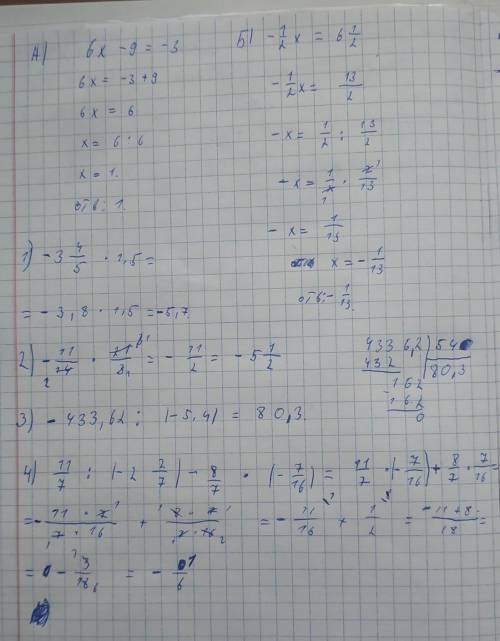 А) 6x - 9 = -3
6x = -3+9
6x = 6
x = 6 : 6
x = 1.
отв: 1.
Б) - 1/2 x = 6 1/2
- 1/2 x = 13/2
- x = 1/2 : 13/2
- x = 1/2 · 2/13
- x = 1/13
x = - 1/13
отв: - 1/13.
1) - 3 4/5 · 1,5 =
= - 3,8 · 1,5 = -5,7.
2) - 11/14 · = - 11/2 = - 5 1/2
4336,2 | 54
432 80,3
162
162
0
3) - 433,62 : (-5,4) = 80,3.
4) 11/7 : (-2 2/7) - 8/7 · (- 7/16) = 11/7 · (- 7/16) + 8/7 · 7/16 =
= - 11 · 7 / 7 · 16 + 8 · 7 / 7 · 16 = - 11/16 + 1/2 = -11+8 / 18 =
= - 3/18 = - 1/6